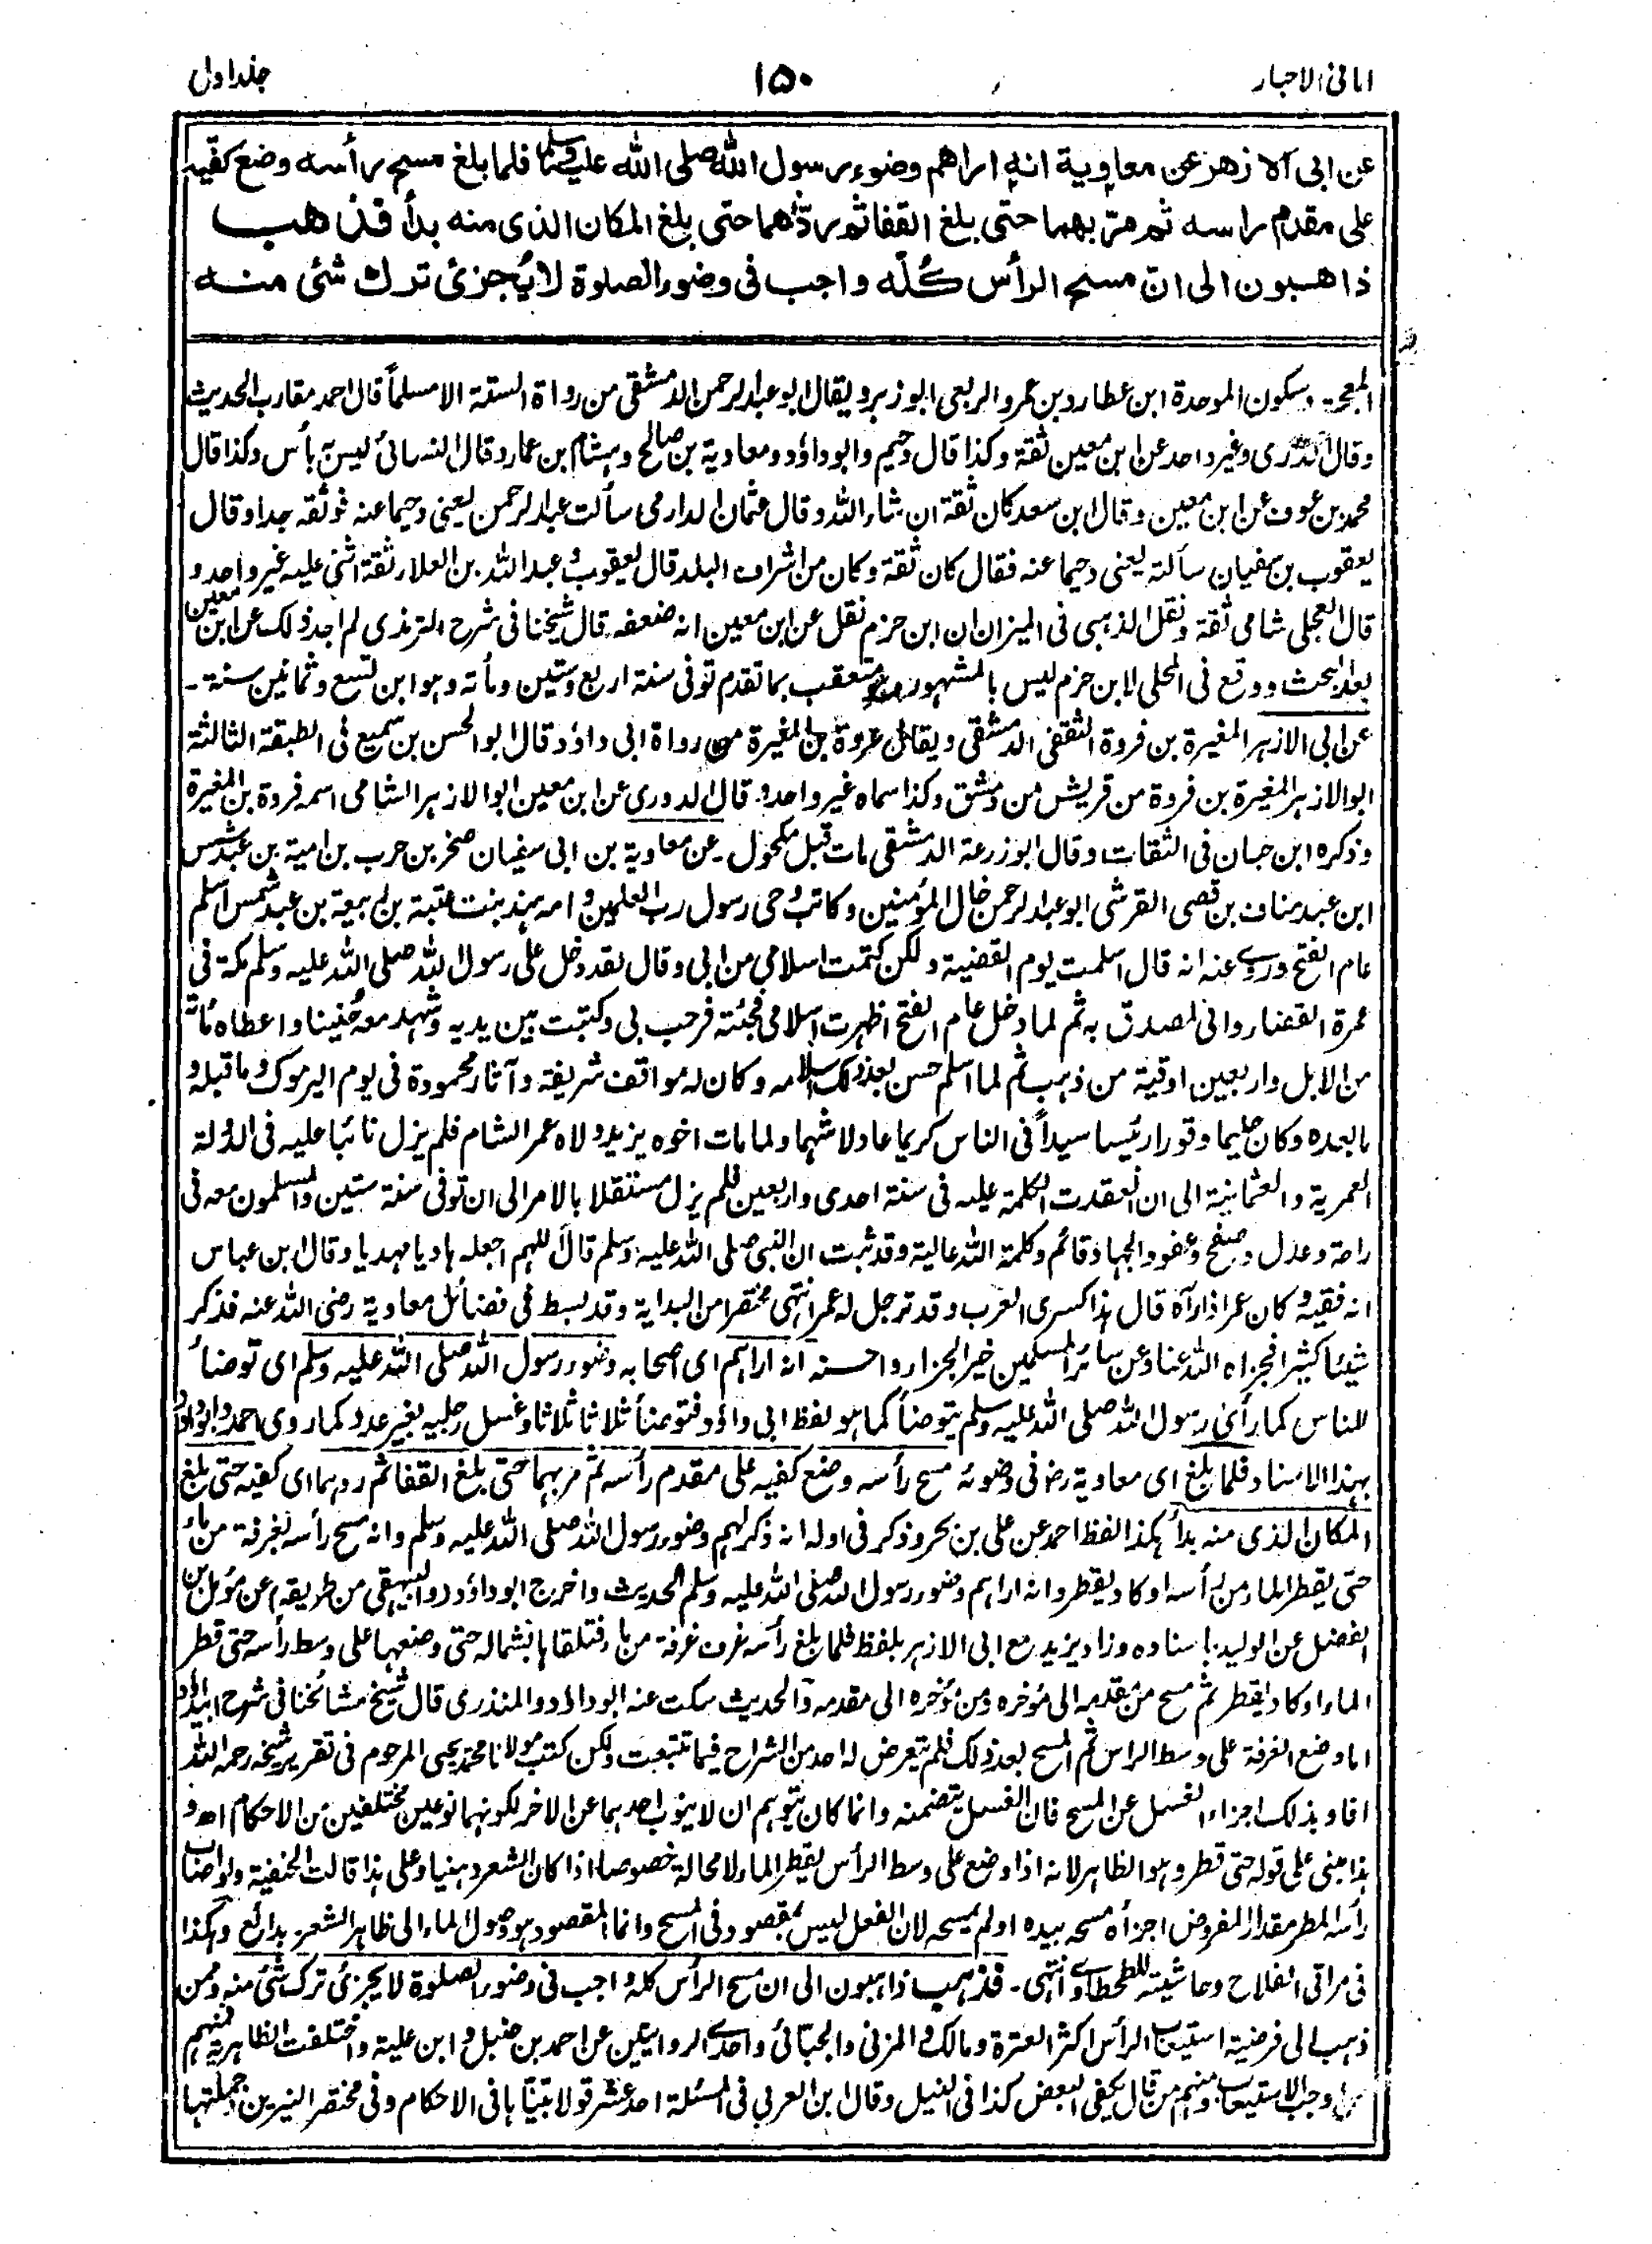 امانی الاحبار
۱۵۰
جلد اول
عن ابی الازهر عن معاویة انه اراهم وضوء رسول الله صلی الله علیه وسلم فلما بلغ مسح رأسه وضع کفیه
علی مقدم راسه ثم مرّ بهما حتی بلغ القفا ثم ردّهما حتی بلغ المکان الذی منه بدأ فذهب
ذاهبون الی انّ مسح الرأس کُلّه واجب فی وضوء الصلوة لا یُجزئ ترك شئ منه
المعجمة وسکون الموحدة ابن عطارد بن عمرو الربعی ابو زبر ویقال ابو عبدالرحمن الدمشقی من رواة الستة الا مسلماً قال احمد مقارب الحدیث
وقال الدوری وغیر واحد عن ابن معین ثقة وکذا قال دحیم وابو داؤد ومعاویة بن صالح وهشام بن عمار وقال النسائی لیس به بأس وکذا قال
محمد بن عوف عن ابن معین وقال ابن سعد کان ثقة ان شاء الله وقال عثمان الدارمی سألت عبدالرحمن یعنی دحیما عنه فوثقه جدا وقال
یعقوب بن سفیان سألته یعنی دحیما عنه فقال کان ثقة وکان من اشراف البلد قال یعقوب وعبد الله بن العلاء ثقة اثنی علیه غیر واحد و
قال العجلی شامی ثقة ونقل الذهبی فی المیزان ان ابن حزم نقل عن ابن معین انه ضعفه قال شیخنا فی شرح الترمذی لم اجد ذلک عن ابن معین
بعد البحث ووقع فی المحلی لابن حزم لیس بالمشهور وهو متعقب بما تقدم توفی سنة اربع وستین ومأته وهو ابن تسع وثمانین سنة۔
عن ابی الازهر المغیرة بن فروة الثقفی الدمشقی ویقال عروة بن المغیرة من رواة ابی داؤد قال ابو الحسن بن سمیع فی الطبقة الثالثة
ابو الازهر المغیرة بن فروة من قریش من دمشق وکذا سماه غیر واحد۔ قال الدوری عن ابن معین ابو الازهر الشامی اسمه فروة بن المغیرة
وذکره ابن حبان فی الثقات وقال ابو زرعة الدمشقی مات قبل مکحول۔ عن معاویة بن ابی سفیان صخر بن حرب بن امیة بن عبد شمس
ابن عبد مناف بن قصی القرشی ابو عبدالرحمن خال المؤمنین وکاتب وحی رسول رب العلمین وامه هند بنت عتبة بن ربیعة بن عبد شمس اسلم
عام الفتح وروے عنه انه قال اسلمت یوم القضیة ولکن کتمت اسلامی من ابی وقال لقد دخل علی رسول الله صلی الله علیه وسلم مکة فی
عمرة القضاء وانی لمصدق به ثم لما دخل عام الفتح اظهرت اسلامی فجئته فرحب بی وکتبت بین یدیه وشهد معه حُنینا واعطاه مائة
من الابل واربعین اوقیة من ذهب ثم لما اسلم حسن بعد ذلک اسلامه وکان له مواقف شریفة وآثار محمودة فی یوم الیرموک وما قبله و
ما بعده وکان حلیما وقورا رئیسا سیداً فی الناس کریما عادلا شهما ولما مات اخوه یزید ولاه عمر الشام فلم یزل نائبا علیه فی الدولة
العمریة والعثمانیة الی ان انعقدت الکلمة علیه فی سنة احدی واربعین فلم یزل مستقلا بالامر الی ان توفی سنة ستین والمسلمون معه فی
راحة وعدل وصفح وعفو والجهاد قائم وکلمة الله عالیة وقد ثبت ان النبی صلی الله علیه وسلم قال اللهم اجعله هادیا مهدیا وقال ابن عباس
انه فقیه وکان عمر اذا رآه قال هذا کسری العرب وقد ترجل له عمر انتهی مختصرا من البدایة وقد بسط فی فضائل معاویة رضی الله عنه فذکر
شیئا کثیرا فجزاه الله عنا وعن سائر المسلمین خیر الجزاء واحسنه انه اراهم ای اصحابه وضوء رسول الله صلی الله علیه وسلم ای توضأ
للناس کما رأی رسول الله صلی الله علیه وسلم یتوضأ کما هو لفظ ابی داؤد فتوضأ ثلاثا ثلاثا وغسل رجلیه بغیر عدد کما روی احمد وابو داؤد
بهذا الاسناد فلما بلغ ای معاویة رض فی وضوئه مسح رأسه وضع کفیه علی مقدم رأسه ثم مر بهما حتی بلغ القفا ثم ردهما ای کفیه حتی بلغ
المکان الذی منه بدأ هکذا لفظ احمد عن علی بن بحر وذکر فی اوله انه ذکر لهم وضوء رسول الله صلی الله علیه وسلم وانه مسح رأسه بغرفة من ماء
حتی یقطر الماء من رأسه او کاد یقطر وانه اراهم وضوء رسول الله صلی الله علیه وسلم الحدیث واخرج ابو داؤد والبیهقی من طریقه عن مؤمل بن
الفضل عن الولید باسناده وزاد یزید مع ابی الازهر بلفظ فلما بلغ رأسه غرف غرفة من ماء فتلقاها بشماله حتی وضعها علی وسط رأسه حتی قطر
الماء او کاد یقطر ثم مسح من مقدمه الی مؤخره ومن مؤخره الی مقدمه والحدیث سکت عنه ابو داؤد والمنذری قال شیخ مشائخنا فی شرح ابی داؤد
اما وضع الغرفة علی وسط الراس ثم المسح بعد ذلک فلم یتعرض له احد من الشراح فیما تتبعت ولکن کتب مولانا محمد یحیی المرحوم فی تقریر شیخه رحمه الله
افاد بذلک اجزاء الغسل عن المسح فان الغسل یتضمنه وانما کان یتوهم ان لا ینوب احدهما عن الاخر لکونهما نوعین مختلفین من الاحکام اھ و
هذا مبنی علی قوله حتی قطر وهو الظاهر لانه اذا وضع علی وسط الرأس یقطر الماء لا محالة خصوصا اذا کان الشعر دهنیا وعلی هذا قالت الحنفیة ولو اصاب
رأسه المطر مقدار المفروض اجزأه مسحه بیده او لم یمسحه لان الفعل لیس بمقصود فی المسح وانما المقصود هو وصول الماء الی ظاهر الشعر بدائع وهکذا
فی مراقی الفلاح وحاشیته للطحطاوے انتهی۔ فذهب ذاهبون الی ان مسح الرأس کله واجب فی وضوء الصلوة لا یجزئ ترک شئ منه وممن
ذهب الی فرضیة استیعاب الرأس اکثر العترة ومالک والمزنی والجبائی واحدے الروایتین عن احمد بن حنبل وابن علیة واختلفت الظاهریة فمنهم
من اوجب الاستیعاب ومنهم من قال یکفی البعض کذا فی النیل وقال ابن العربی فی المسئلة احد عشر قولا بیّنّاها فی الاحکام وفی مختصر النیرین وجملتها